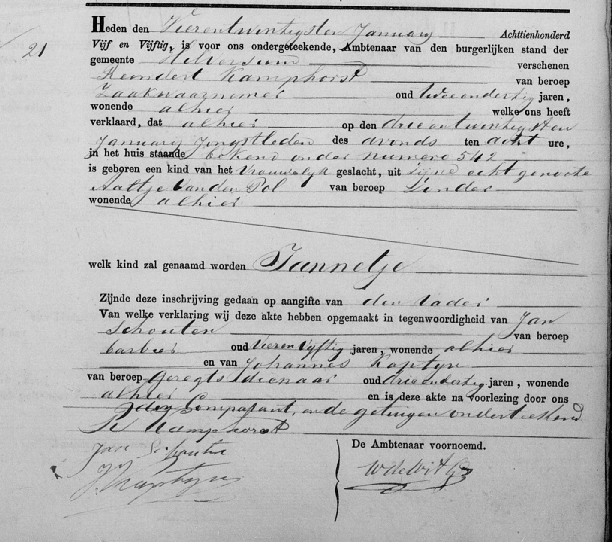 21
Heden den Vierentwintigsten January Achttienhonderd
Vijf en Vijftig, is voor ons ondergeteekende, Ambtenaar van den burgerlijken stand der
gemeente Hilversum verschenen
Reindert Kamphorst van beroep
Zaakwaarnemer oud tweeendertig jaren,
wonende alhier welke ons heeft
verklaard, dat alhier op den drieentwintigsten
January Jongstleden des avonds ten acht ure,
in het huis staande bekend onder numero 542
is geboren een kind van het Vrouwelyk geslacht, uit Zijne echt genoote
Aaltje van den Pol van beroep Zonder
wonende alhier
welk kind zal genaamd worden Jannetje
Zijnde deze inschrijving gedaan op aangifte van den Vader
Van welke verklaring wij deze akte hebben opgemaakt in tegenwoordigheid van Jan
Schouten van beroep
barbier oud Vierenvyftig jaren, wonende alhier
en van Johannes Kaptyn
van beroep Geregtsdienaar oud drieendertig jaren, wonende
alhier en is deze akte na voorlezing door ons
den Comparant, en de getuigen onderteekend
R Kamphorst
Jan Schouten
J Kaptyn
De Ambtenaar voornoemd.
W de Wit